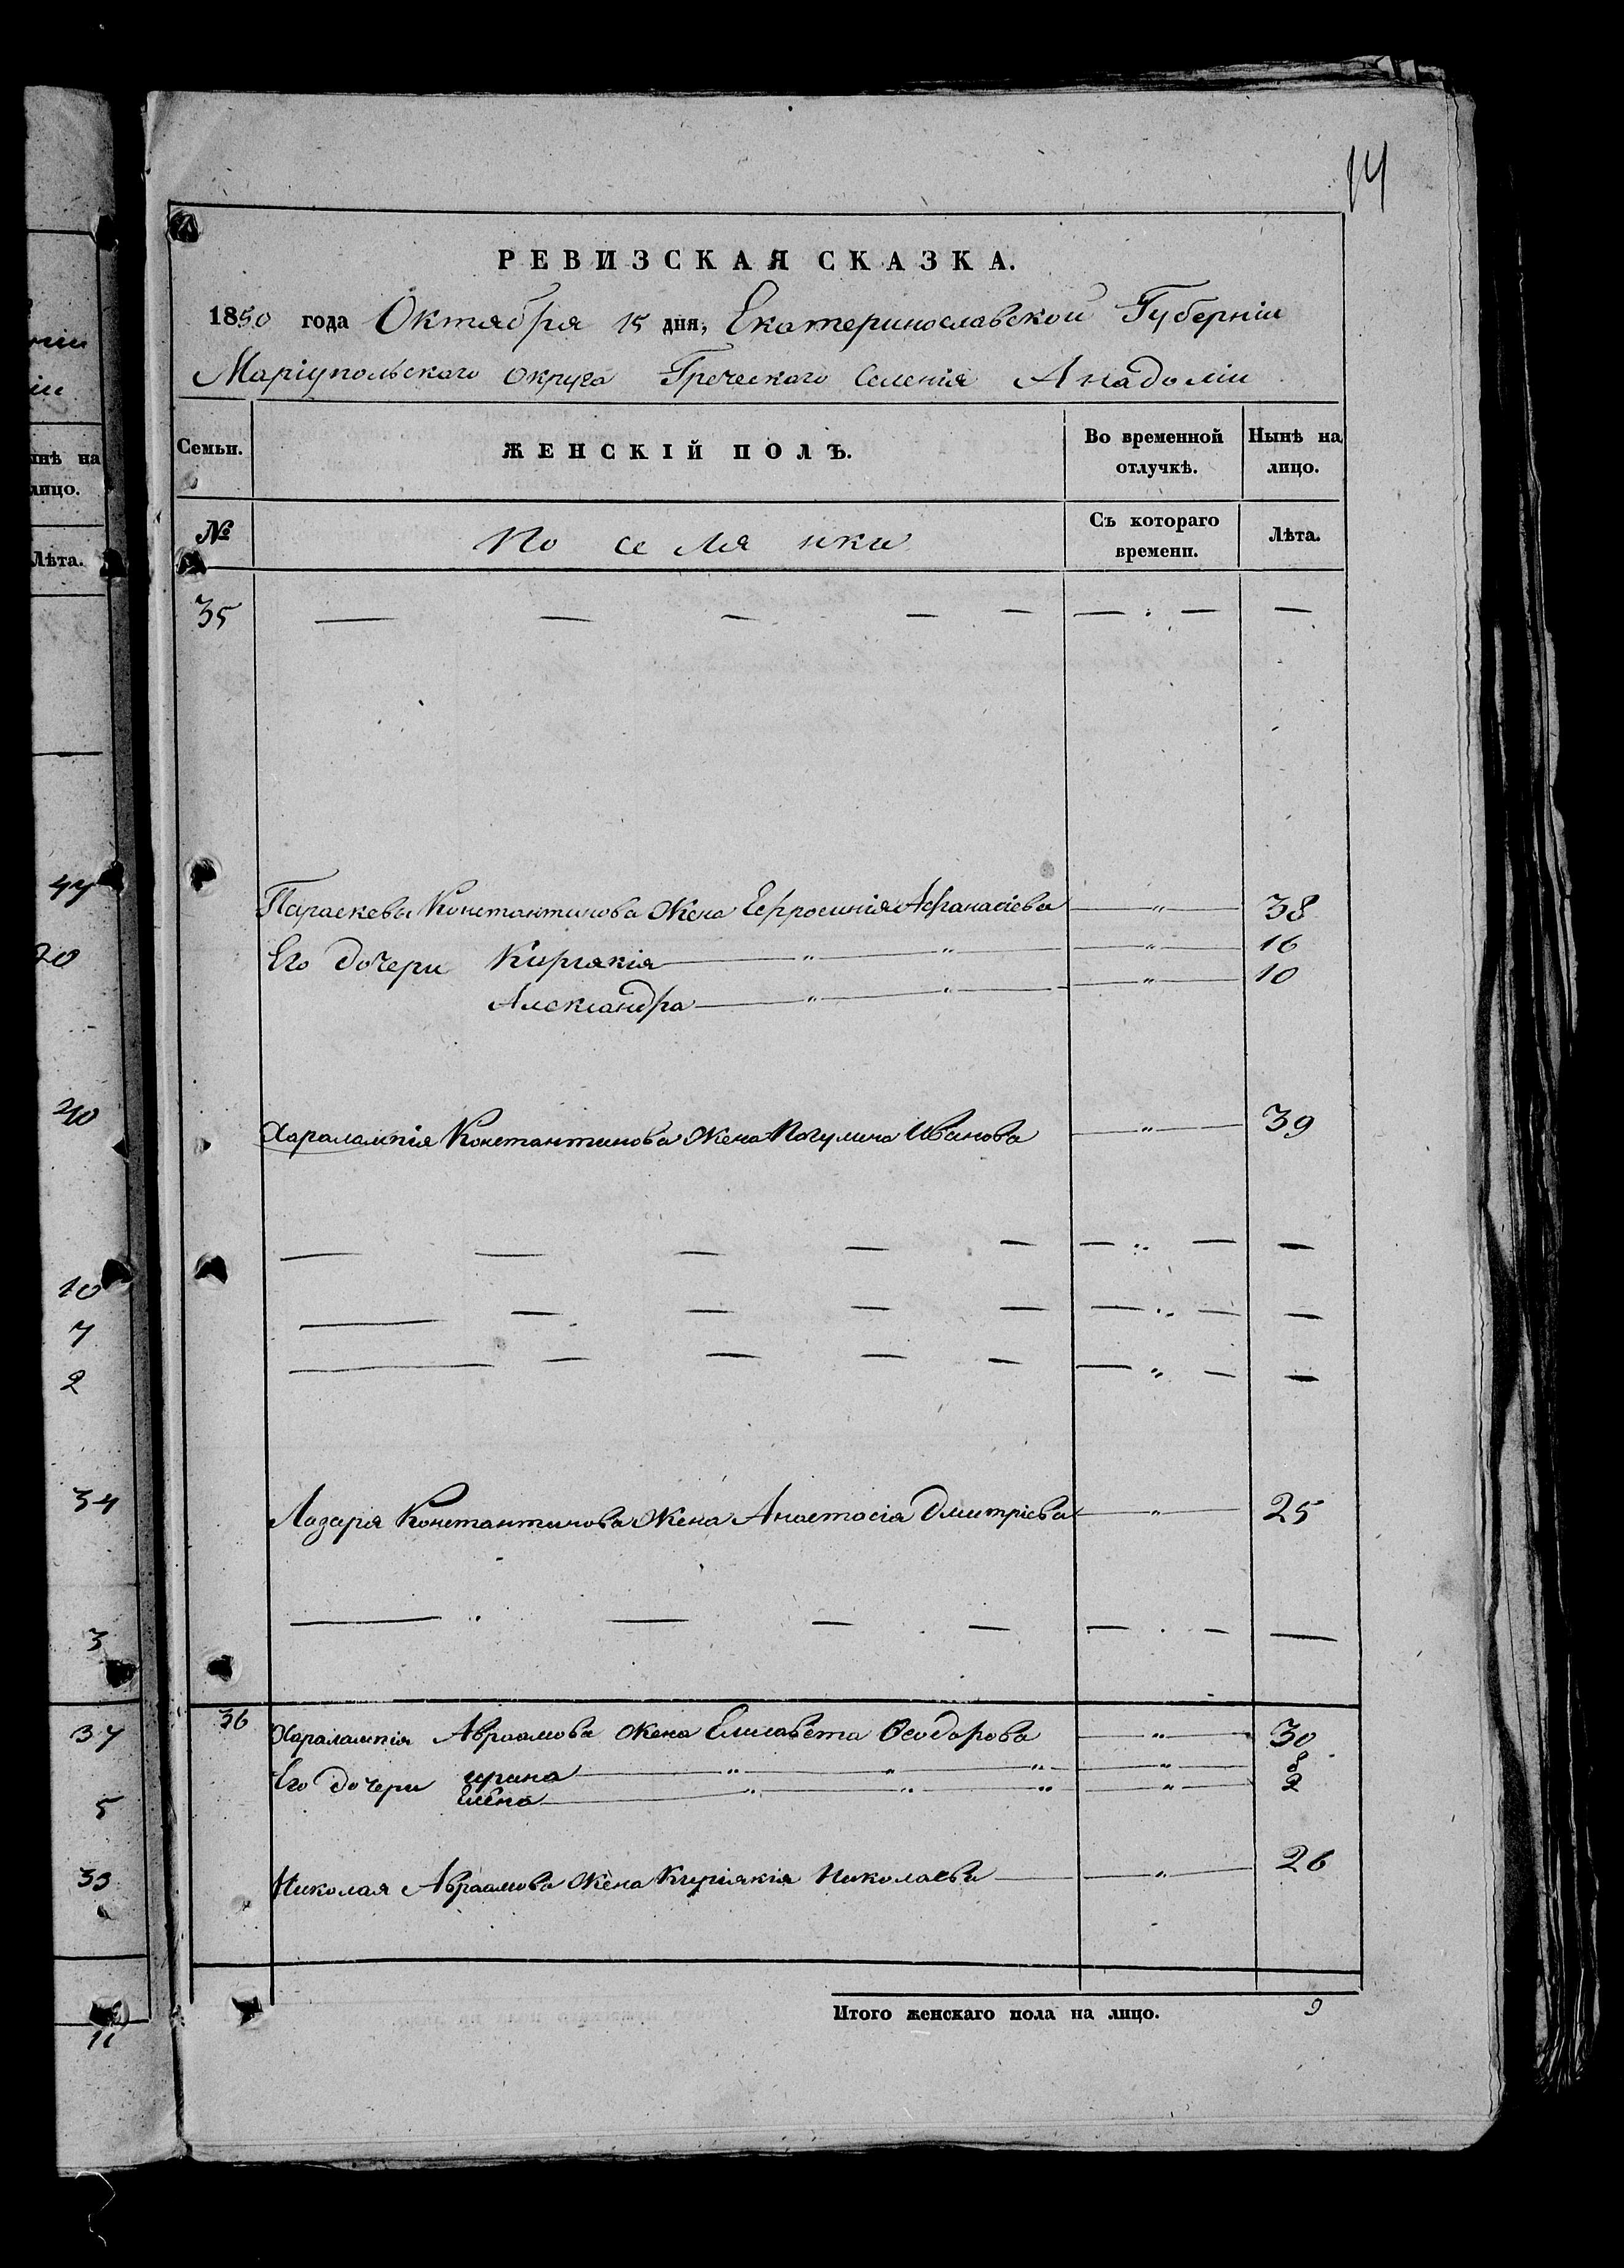 14
РЕВИЗСКАЯ СКАЗКА.
1850 года Октября 15 дня, Екатеринославской Губерніи
Маріупольскаго округа Греческаго Селенія Анадоліи
Семьи. ЖЕНСКІЙ ПОЛЪ. Во временной отлучкѣ. Нынѣ на лицо.
№ Поселянки Съ котораго времени. Лѣта.
35 — — — — — — . — —
Параскева Константинова Жена Ефросинія Афанасіева — " — 38
Его дочери Киріакія — " — " — " — 16
Александра — " — " — " — 10
Харалампія Константинова Жена Ивanова — " — 39
— — — — — — " — —
— — — — — — " — —
— — — — — — " — —
Лазаря Константинова Жена Анастасія Дмитріева — " — 25
— — — — — . — —
36 Харалампія Авраамова Жена Елисавета Ѳеодорова — " — 30
Его дочери ирина — " — " — " — " — 8
Елена — " — " — " — " — 2
Николая Авраамова Жена Киріакія Николаева — " — 26
Итого женскаго пола на лицо. 9
нѣ на
лицо.
Лѣта.
47
20
40
10
7
2
34
3
37
5
33
11